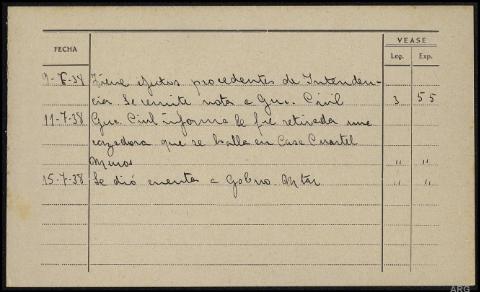 VEASE
FECHA Leg. Exp.
9-6-38 Tiene efectos procedentes de Intenden-
cia. Se remite nota a Gua. Civil 3 55
11-7-38 Gua. Civil informa le fue retirada una
que se halla en Casa Cuartel
" "
15-7-38 Se dió cuenta a Gobno. Mtar " "
ARG